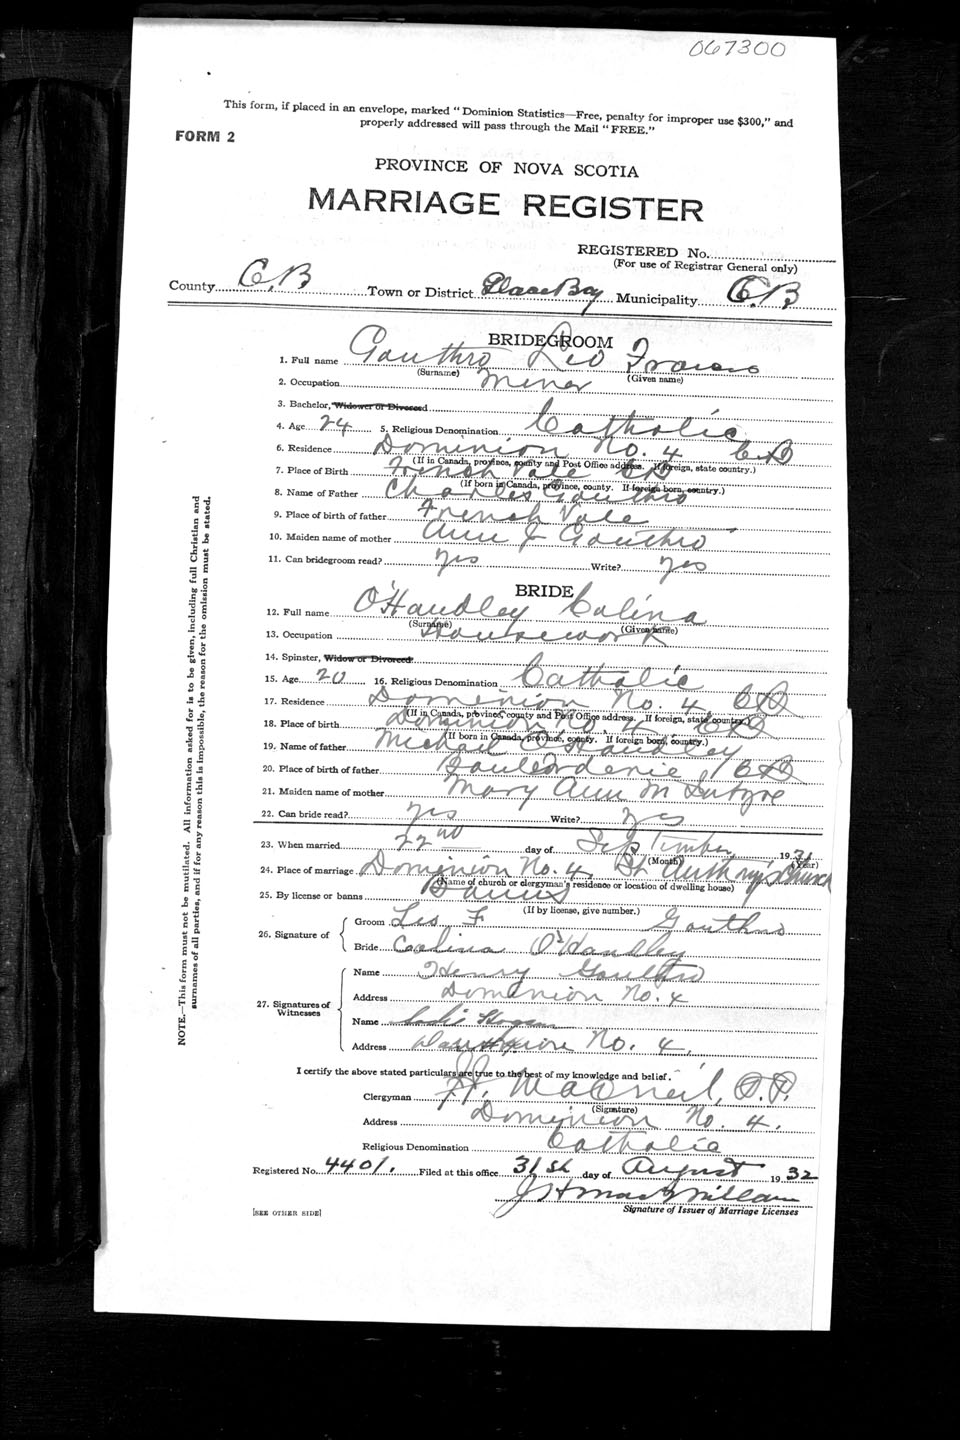 067300
This form, if placed in an envelope, marked "Dominion Statistics—Free, penalty for improper use $300," and
properly addressed will pass through the Mail "FREE."
FORM 2
PROVINCE OF NOVA SCOTIA
MARRIAGE REGISTER
REGISTERED No.
(For use of Registrar General only)
County C.B Town or District Glace Bay Municipality C.B.
BRIDEGROOM
1. Full name Gouthro Leo Francis
(Surname) (Given name)
2. Occupation Miner
3. Bachelor, Widower or Divorced
4. Age 24 5. Religious Denomination Catholic
6. Residence Dominion No. 4 CB
(If in Canada, province, county and Post Office address. If foreign, state country.)
7. Place of Birth French Vale CB
(If born in Canada, province, county. If foreign born, country.)
8. Name of Father Charles Gouthro
9. Place of birth of father French Vale
10. Maiden name of mother Ann J Gouthro
11. Can bridegroom read? yes Write? yes
BRIDE
12. Full name O'Handley Calina
(Surname) (Given name)
13. Occupation Housework
14. Spinster, Widow or Divorced
15. Age 20 16. Religious Denomination Catholic
17. Residence Dominion No. 4 CB
(If in Canada, province, county and Post Office address. If foreign, state country.)
18. Place of birth Dominion No CB
(If born in Canada, province, county. If foreign born, country.)
19. Name of father Michael O'Handley
20. Place of birth of father Boulorderie CB
21. Maiden name of mother Mary Ann McIntyre
22. Can bride read? yes Write? yes
23. When married 22nd day of September 1931
(Month) (Year)
24. Place of marriage Dominion No. 4, St. Anthony's Church
(Name of church or clergyman's residence or location of dwelling house)
25. By license or banns Banns
(If by license, give number.)
26. Signature of
Groom Leo F Gouthro
Bride Coelina O'Handley
27. Signatures of Witnesses
Name Henry Gouthro
Address Dominion No. 4
Name Hogan
Address Dominion No. 4,
I certify the above stated particulars are true to the best of my knowledge and belief.
Clergyman MacNeil, P.P.
(Signature)
Address Dominion No. 4.
Religious Denomination Catholic
Registered No. 4401. Filed at this office 31st day of August 1932
J H MacMillan
Signature of Issuer of Marriage Licenses
[SEE OTHER SIDE]
NOTE.—This form must not be mutilated. All information asked for is to be given, including full Christian and
surnames of all parties, and if for any reason this is impossible, the reason for the omission must be stated.